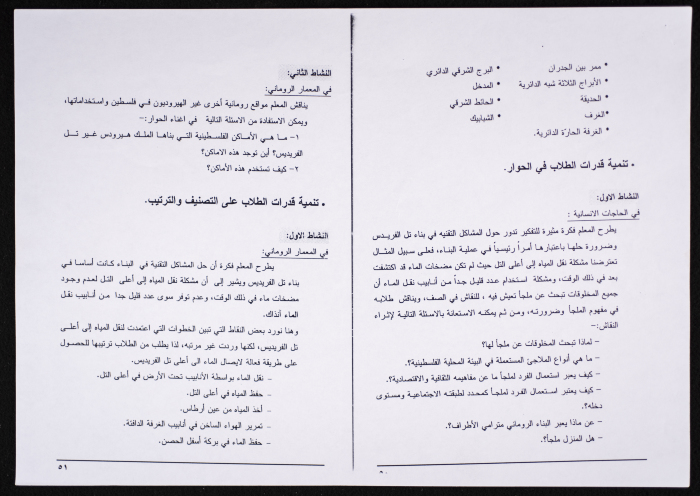 • ممر بين الجدران
• الأبراج الثلاثة شبه الدائرية
• الحديقة
•الغرف
• الغرفة الحارة الدائرية.
• البرج الشرقي الدائري
• المدخل
• الحائط الشرقي
• الشبابيك
• تنمية قدرات الطلاب في الحوار.
النشاط الاول:
في الحاجات الانسانية :
يطرح المعلم فكرة مثيرة للتفكير تدور حول المشاكل التقنيه في بناء تل الفريدس
وضرورة حلها باعتبارها أمراً رئيسياً في عملية البناء، فعلى سبيل المثال
تعترضنا مشكلة نقل المياه إلى أعلى التل حيث لم تكن مضخات الماء قد اكتشفت
بعد في ذلك الوقت، ومشكلة استخدام عدد قليل جداً من أنابيب نقل الماء أن
جميع المخلوقات تبحث عن ملجأ تعيش فيه ، للنقاش في الصف، ويناقش طلابه
في مفهوم الملجأ وضرورته، ومن ثم يمكنه الاستعانة بالاسئلة التالية لإثراء
النقاش:-
– لماذا تبحث المخلوقات عن ملجأ لها؟
– ما هي أنواع الملاجئ المستعملة في البيئة المحلية الفلسطينية؟
– كيف يعبر استعمال الفرد لملجأ ما عن مفاهيمه الثقافية والاقتصادية؟.
– كيف يعتبر استعمال الفرد لملجأ كمحدد لطبقته الاجتماعية ومستوى
دخله؟.
– عن ماذا يعبر البناء الروماني مترامي الأطراف؟.
– هل المنزل ملجأ؟.
النشاط الثاني:
في المعمار الروماني:
يناقش المعلم مواقع رومانية أخرى غير الهيروديون في فلسطين واستخداماتها،
ويمكن الاستفادة من الاسئلة التالية في اغناء الحوار:-
١- ما هي الأماكن الفلسطينية التي بناها الملك هيرودس غير تل
الفريديس؟ أين توجد هذه الاماكن؟
٢- كيف تستخدم هذه الأماكن؟
• تنمية قدرات الطلاب على التصنيف والترتيب.
النشاط الاول:
في المعمار الروماني:
يطرح المعلم فكرة أن حل المشاكل التقنية في البناء كانت أساسا في
بناء تل الفريديس ويشير إلى أن مشكلة نقل المياه إلى أعلى التل لعدم وجود
مضخات ماء في ذلك الوقت، وعدم توفر سوى عدد قليل جدا من أنابيب نقل
الماء آنذاك.
وهنا نورد بعض النقاط التي تبين الخطوات التي اعتمدت لنقل المياه إلى أعلى
تل الفريديس، لكنها وردت غير مرتبه، لذا يطلب من الطلاب ترتيبها للحصول
على طريقة فعالة لايصال الماء الى أعلى تل الفريديس.
– نقل الماء بواسطة الأنابيب تحت الأرض في أعلى التل.
– حفظ المياه في أعلى التل.
– أخذ المياه من عين أرطاس.
– تمرير الهواء الساخن في أنابيب الغرفة الدافئة.
– حفظ الماء في بركة أسفل الحصن.
٥١